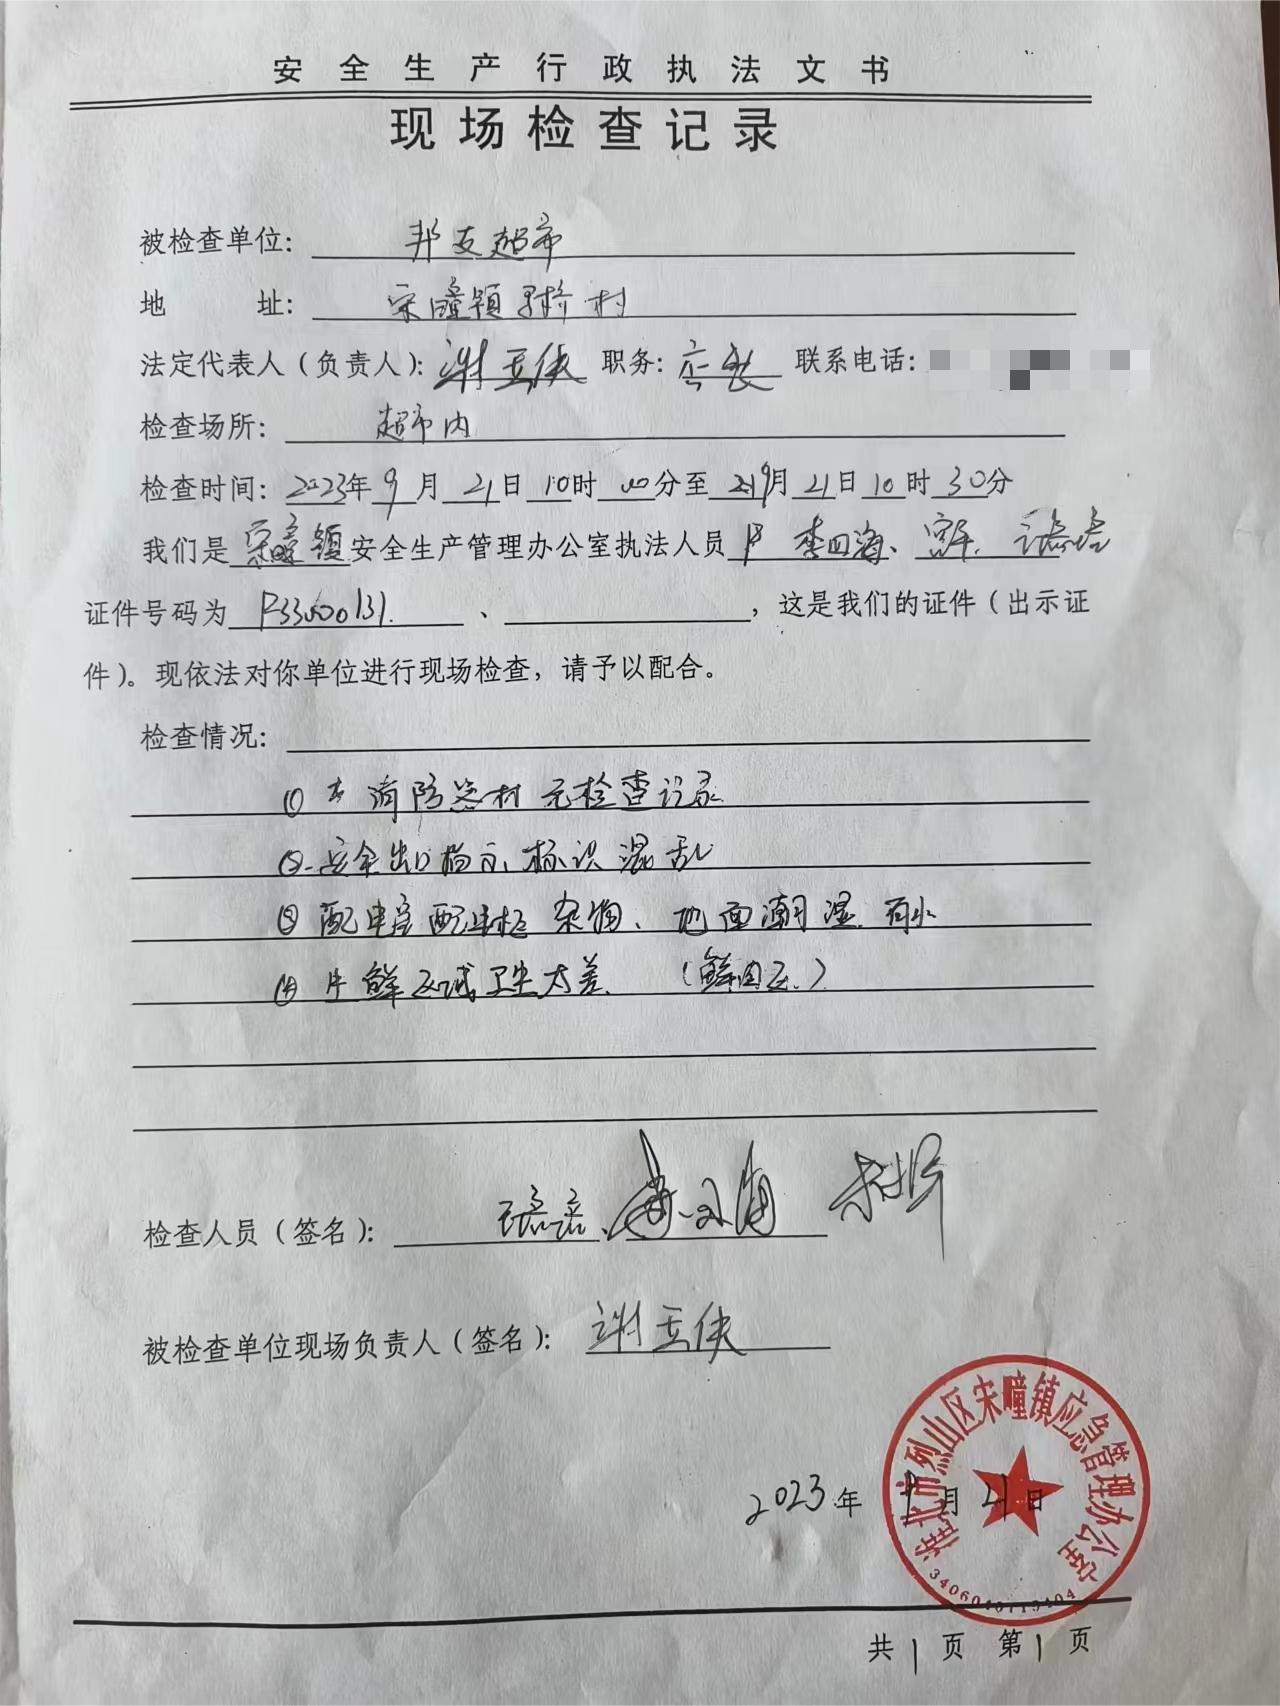 安全生产行政执法文书
现场检查记录
被检查单位: 邦友超市
地 址: 宋疃镇 村
法定代表人(负责人): 谢 侠 职务: 店长 联系电话:
检查场所: 超市内
检查时间: 2023年9月21日10时00分至 9月21日10时30分
我们是宋疃镇安全生产管理办公室执法人员 李四海、
证件号码为 、 ,这是我们的证件(出示证
件)。现依法对你单位进行现场检查,请予以配合。
检查情况:
① 消防器材无检查记录
②.安全出口指示标识混乱
③配电室配电柜杂物、地面潮湿.有水
④ 鲜区域卫生太差.(鲜肉区.)
检查人员(签名):
被检查单位现场负责人(签名): 谢 侠
2023年9月21日
淮北市烈山区宋疃镇应急管理办公室
共1页 第1页